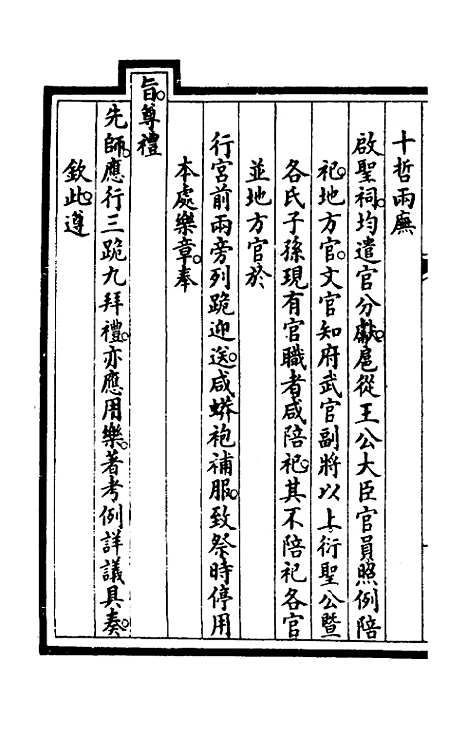 十哲兩廡
啟聖祠。均遣官分獻。扈從王公大臣官員照例陪
祀。地方官。文官知府武官副將以上衍聖公暨
各氏子孫現有官職者咸陪祀。其不陪祀各官
並地方官於
行宮前兩旁列跪迎送。咸蟒袍補服。致祭時停用
本處樂章。奉
旨。尊禮
先師。應行三跪九拜禮。亦應用樂。著考例詳議具奏。
欽此。遵